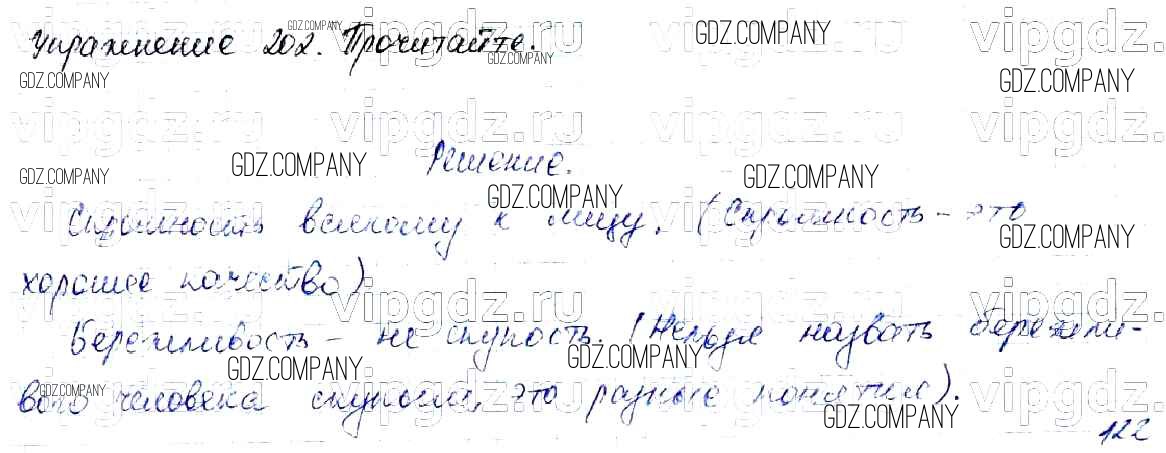 Упражнение 202. Прочитайте.
Решение.
Скромность всякому к лицу. (Скромность – это
хорошее качество)
Бережливость – не скупость. (Нельзя назвать бережли-
вого человека скупым, это разные понятия).
122
GDZ.COMPANY
vipgdz.ru